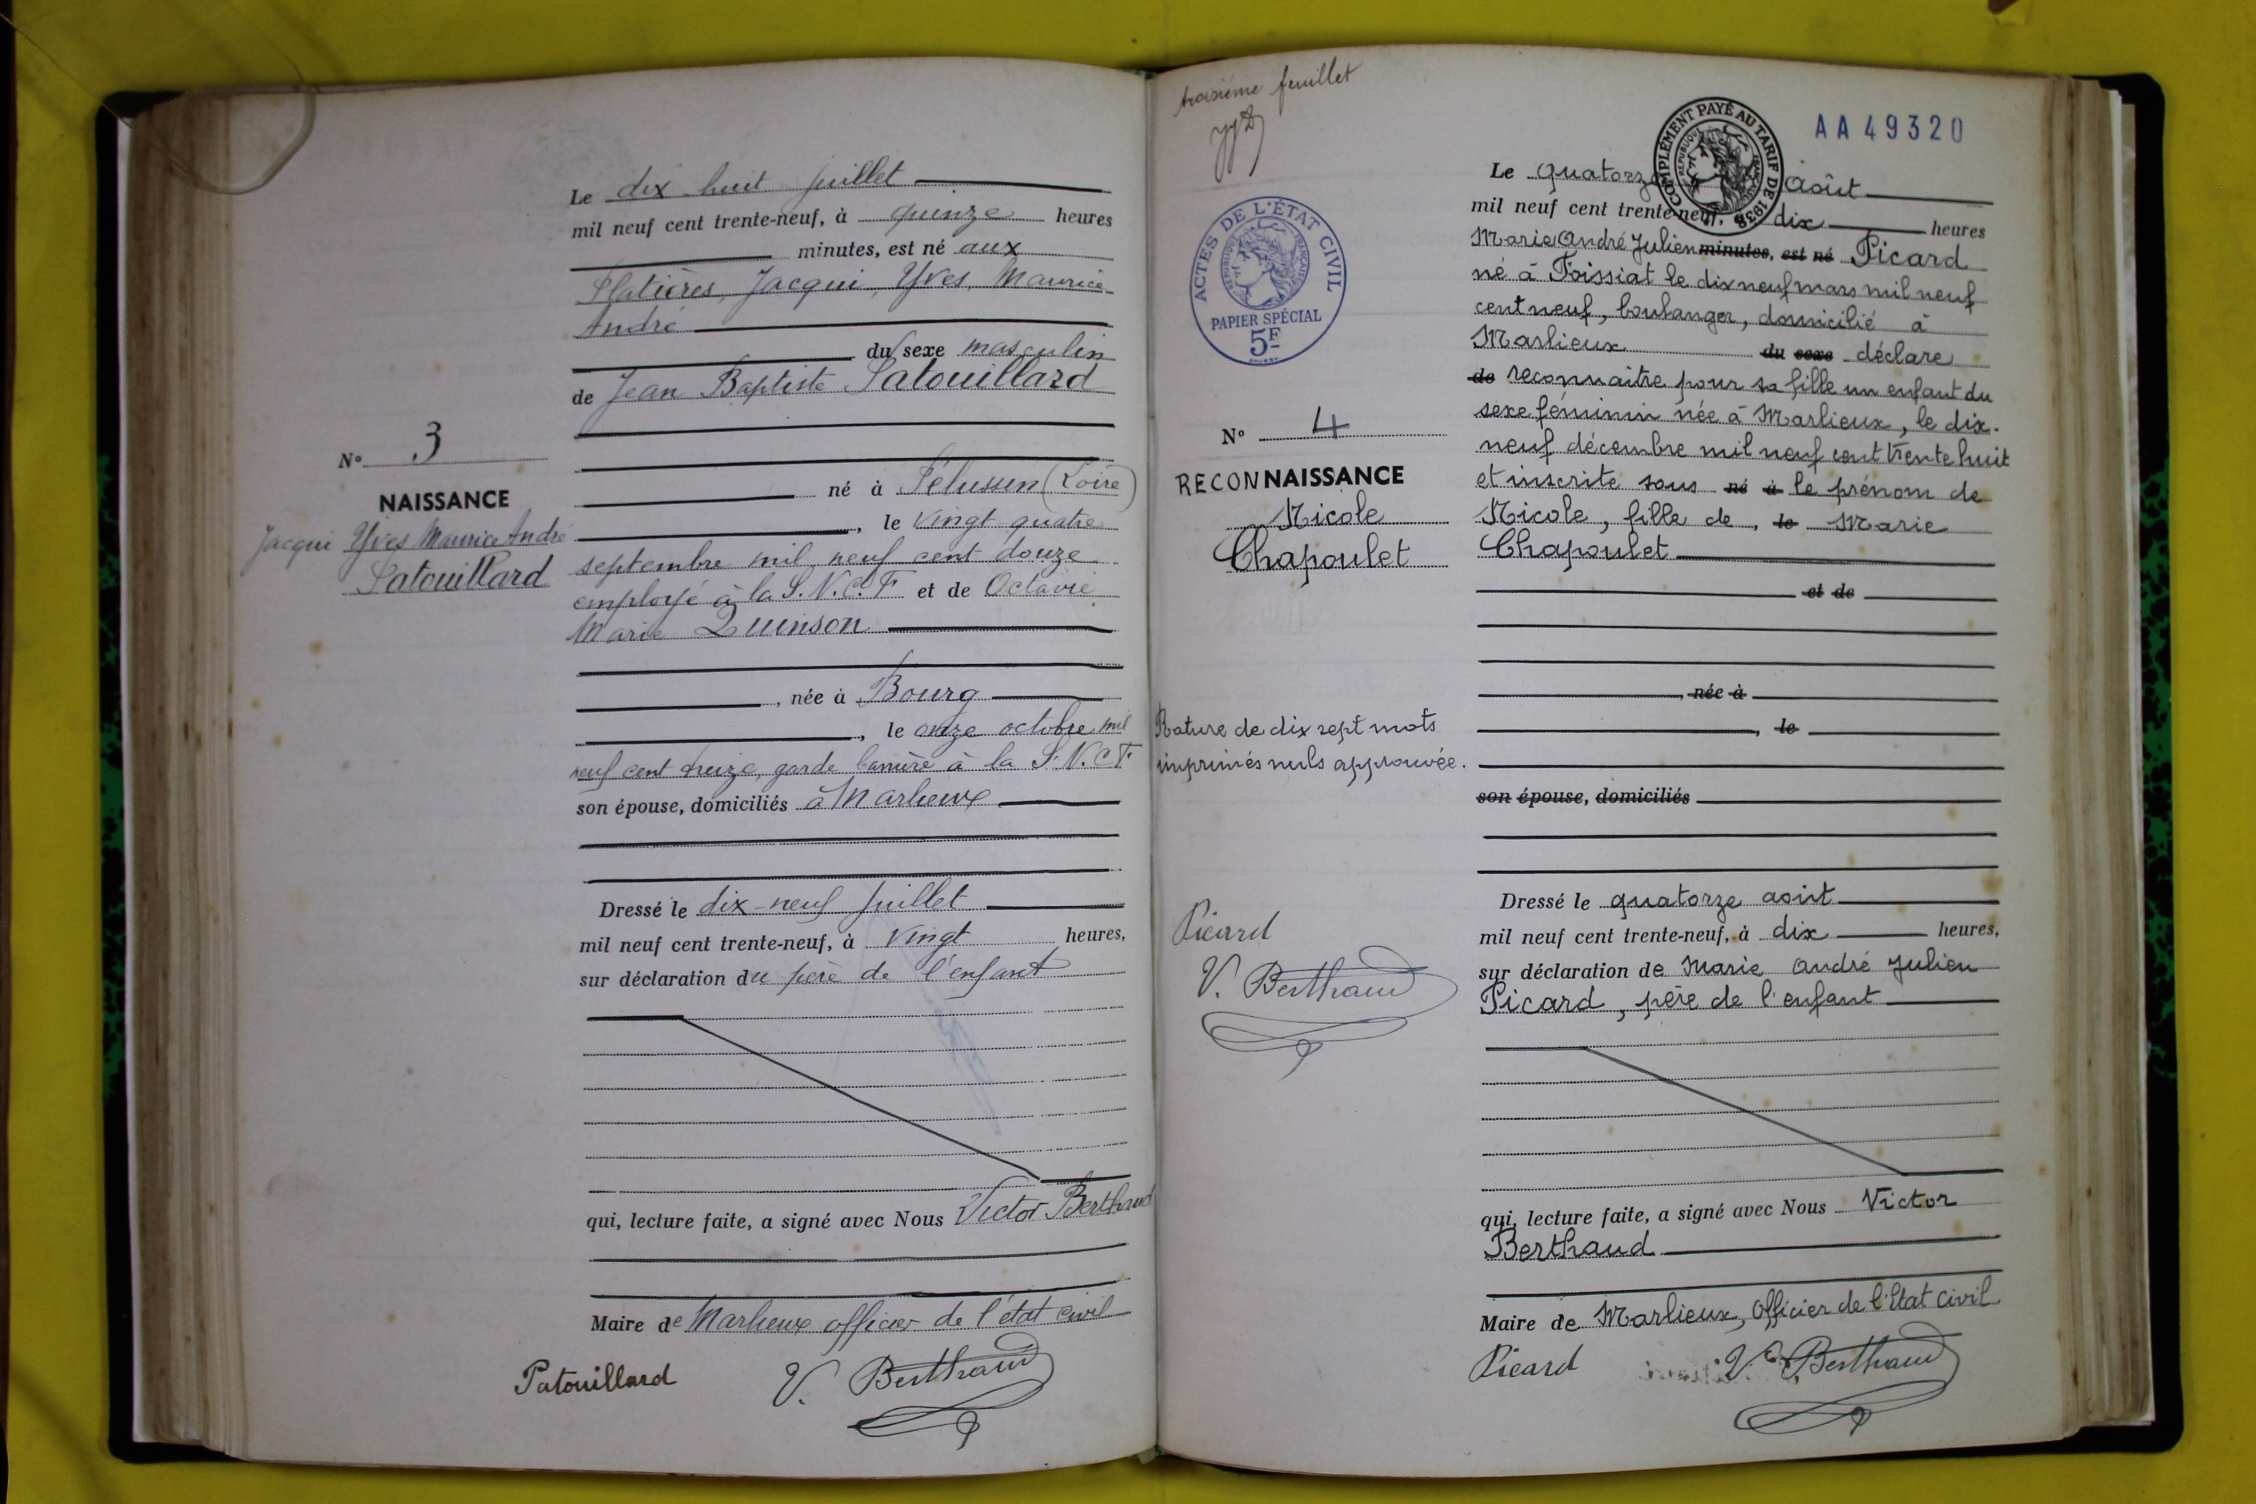 Le dix-huit juillet
mil neuf cent trente-neuf, à quinze heures
minutes, est né aux
Platières, Jacqui, Yves, Maurice
André
du sexe masculin
de Jean Baptiste Patouillard
N° 3
né à Pélussin (Loire)
NAISSANCE
Jacqui Yves Maurice André
Patouillard
, le vingt quatre
septembre mil neuf cent douze
employé à la S.N.C.F et de Octavie
Marie Quinson
, née à Bourg
, le onze octobre mil
neuf cent treize, garde barrière à la S.N.C.F
son épouse, domiciliés à Marlieux
Dressé le dix-neuf juillet
mil neuf cent trente-neuf, à vingt heures,
sur déclaration du père de l'enfant
qui, lecture faite, a signé avec Nous Victor Berthaud
Maire de Marlieux officier de l'état civil
Patouillard V. Berthaud
troisième feuillet
COMPLÉMENT PAYÉ AU TARIF DE 1938
AA 49320
ACTES DE L'ÉTAT CIVIL
RÉPUBLIQUE FRANÇAISE
PAPIER SPÉCIAL
5F
Le quatorze août
mil neuf cent trente-neuf, à dix heures
Marie André Julien minutes, est né Picard
né à Foissiat le dix neuf mars mil neuf
cent neuf, boulanger, domicilié à
Marlieux du sexe déclare
de reconnaitre pour sa fille un enfant du
sexe féminin née à Marlieux, le dix-
neuf décembre mil neuf cent trente huit
et inscrite sous né à le prénom de
Nicole, fille de, le Marie
Chapoulet
N° 4
RECONNAISSANCE
Nicole
Chapoulet
et de
, née à
, le
Rature de dix sept mots
imprimés nuls approuvée.
son épouse, domiciliés
Picard
V. Berthaud
Dressé le quatorze août
mil neuf cent trente-neuf, à dix heures,
sur déclaration de Marie André Julien
Picard, père de l'enfant
qui, lecture faite, a signé avec Nous Victor
Berthaud
Maire de Marlieux, Officier de l'Etat civil
Picard V. Berthaud